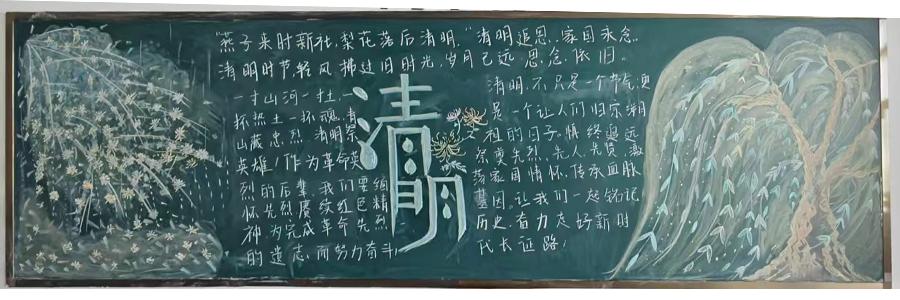 "燕子来时新社,梨花落后清明。"清明追思,家国永念。
清明时节,轻风拂过旧时光,岁月已远,思念依旧。
一寸山河一寸土,一
抔热土一抔魂,青
山藏忠烈,清明祭
英雄!作为革命英
烈的后辈,我们要缅
怀先烈赓续红色精
神为完成革命先烈
的遗志,而努力奋斗!
清明
清明,不只是一个节气,更
是一个让人们归宗溯
祖的日子,慎终追远
祭奠先烈、先人、先贤,激
荡家国情怀,传承血脉
基因,让我们一起铭记
历史,奋力走好新时
代长征路!